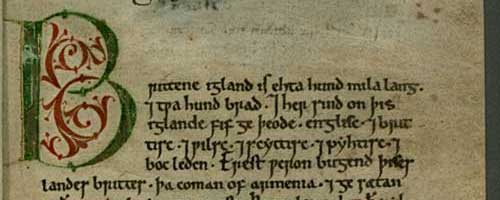 Brittene igland is ehta hund mila lang.
⁊ tƿa hund brad. ⁊ her sind on þis
iglande fif ge þeode. englisc. ⁊ brit
tisc. ⁊ ƿilsc. ⁊ scyttisc. ⁊ pyhtisc. ⁊
boc leden. Erest ƿeron bugend þises
landes brittes. þa coman of armenia. ⁊ ge sætan